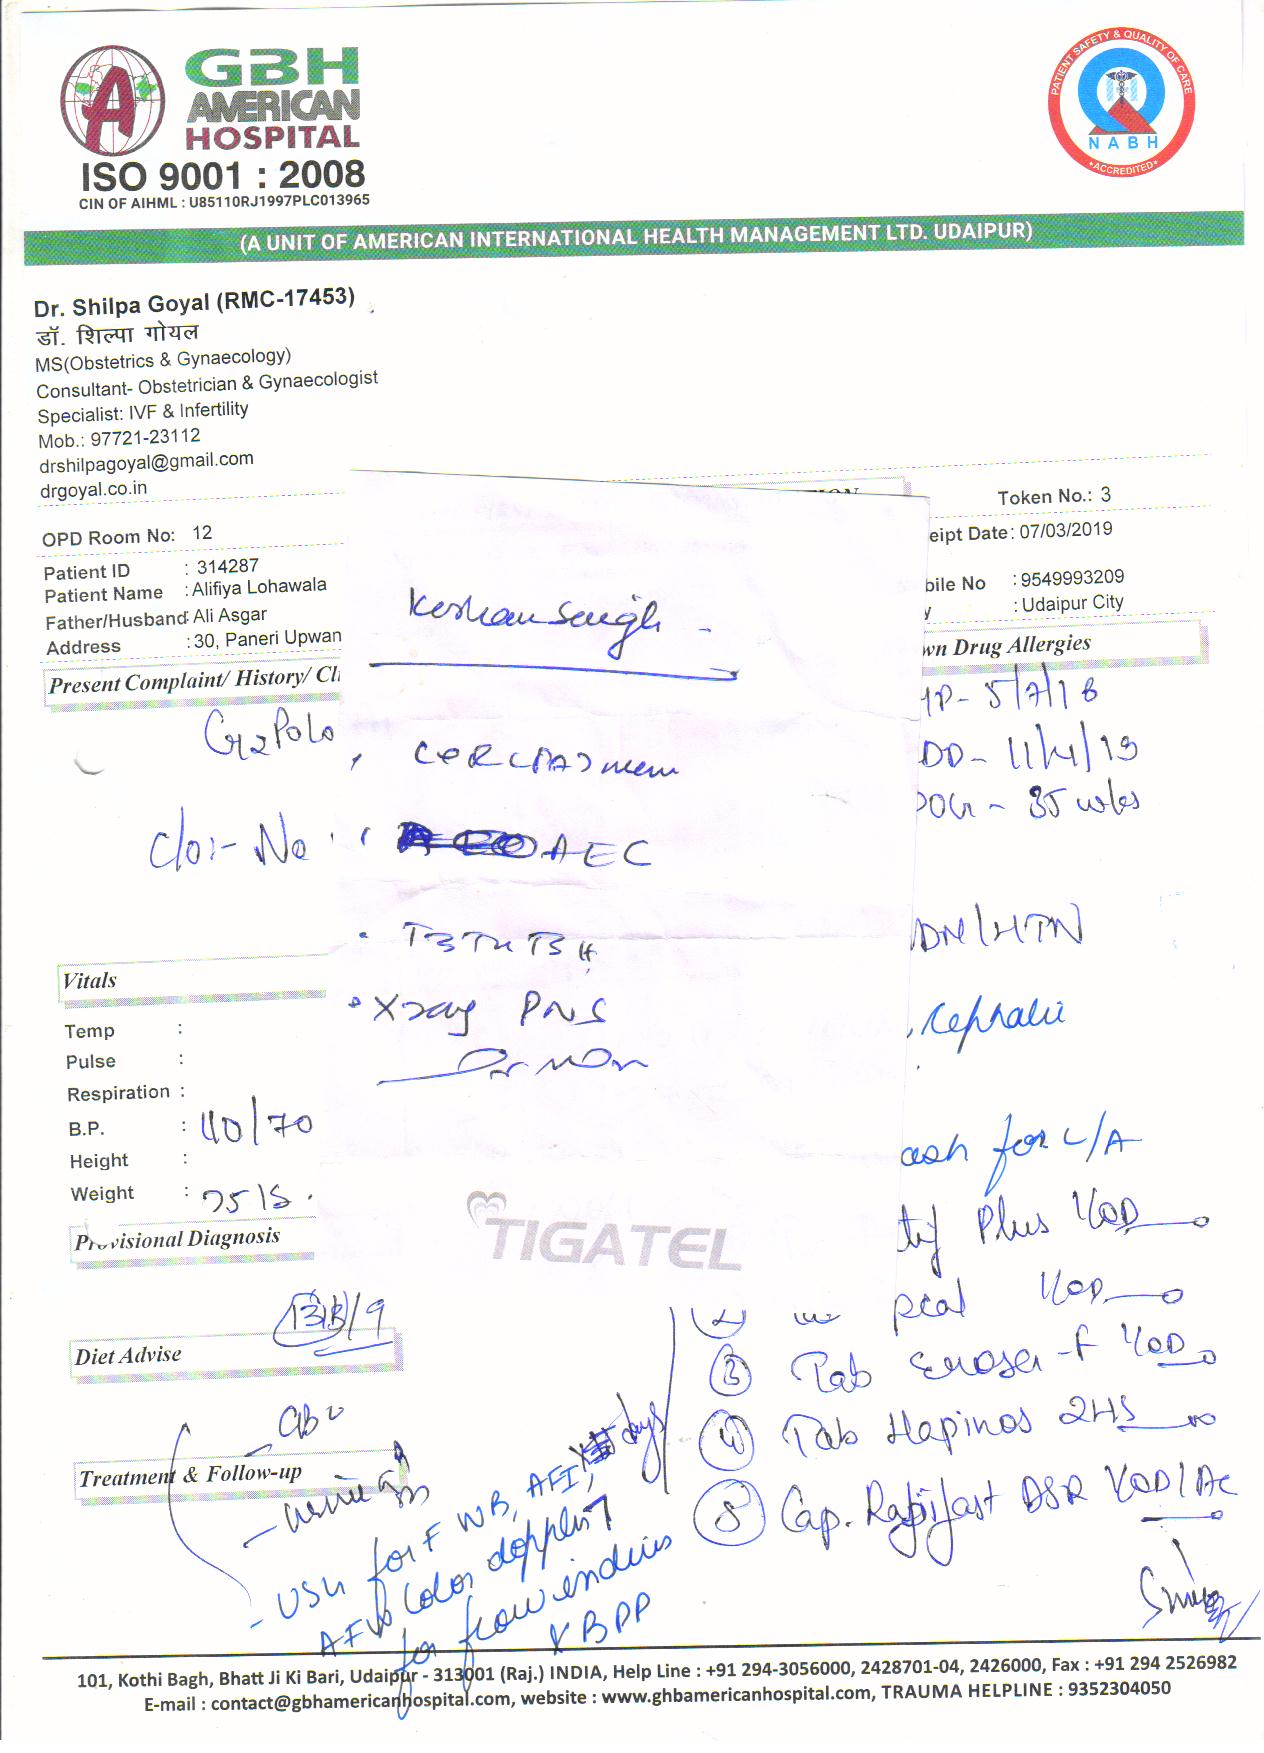 GBH
AMERICAN
HOSPITAL
ISO 9001 : 2008
CIN OF AIHML : U85110RJ1997PLC013965
PATIENT SAFETY & QUALITY OF CARE
NABH
ACCREDITED
(A UNIT OF AMERICAN INTERNATIONAL HEALTH MANAGEMENT LTD. UDAIPUR)
Dr. Shilpa Goyal (RMC-17453)
डॉ. शिल्पा गोयल
MS(Obstetrics & Gynaecology)
Consultant- Obstetrician & Gynaecologist
Specialist: IVF & Infertility
Mob.: 97721-23112
drshilpagoyal@gmail.com
drgoyal.co.in
Token No.: 3
OPD Room No: 12
eipt Date: 07/03/2019
Patient ID : 314287
Patient Name : Alifiya Lohawala
bile No : 9549993209
Father/Husband: Ali Asgar
y : Udaipur City
Address : 30, Paneri Upwan
Present Complaint/ History/ Cli
wn Drug Allergies
G2P0L0
MP- 5/7/18
DD- 11/4/19
POG - 35 wks
c/o:- No
DM/HTN
Cephalic
Keshar Singh
AEC
T3 T4 TSH
Xray PNS
TIGATEL
Vitals
Temp :
Pulse :
Respiration :
B.P. : 110/70
Height :
Weight :
Provisional Diagnosis
ash for L/A
Plus 1/OD
pcal 1/OD
3 Tab -F 1/OD
4 Tab Hapinos 2HS
5 Cap. Rapifast DSR 1/OD/AC
Diet Advise
Treatment & Follow-up
- USG for F WB, AFI,
AFV color doppler
for flow indices
& BPP
days
101, Kothi Bagh, Bhatt Ji Ki Bari, Udaipur - 313001 (Raj.) INDIA, Help Line : +91 294-3056000, 2428701-04, 2426000, Fax : +91 294 2526982
E-mail : contact@gbhamericanhospital.com, website : www.ghbamericanhospital.com, TRAUMA HELPLINE : 9352304050